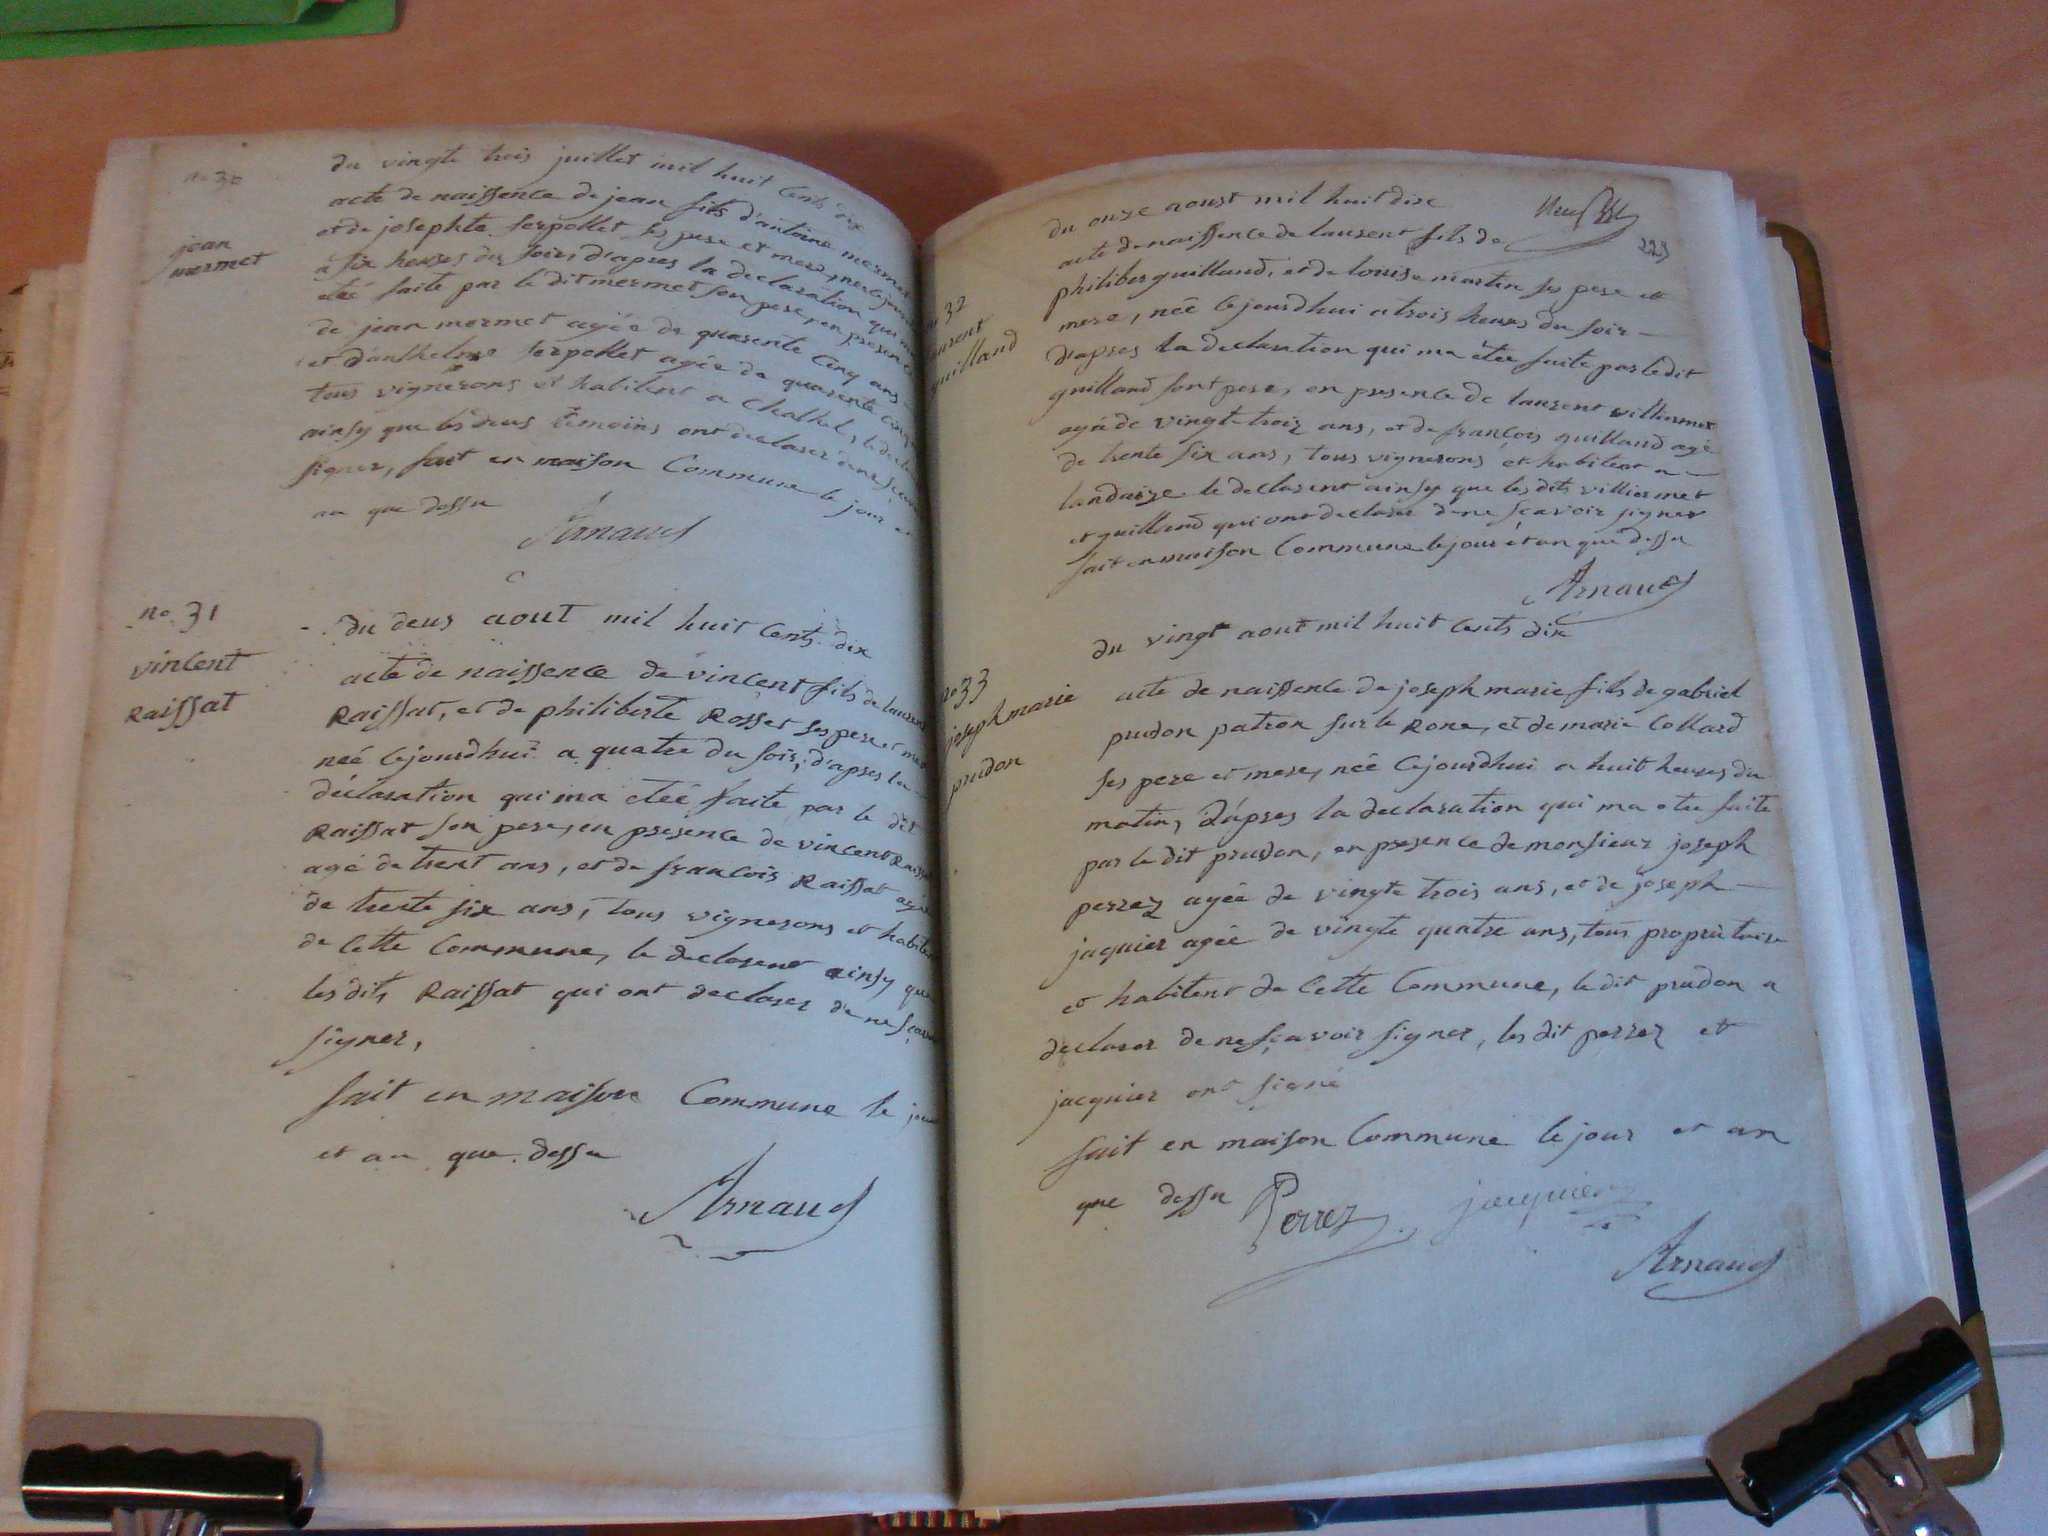 no 30
jean
mermet
du vingte trois juillet mil huit Cents dix
acte de naissence de jean fils d'antoine mermet
et de josephte serpollet ses pere et mere, née
a six heures du soir, d'apres la declaration qui ma
eteé faite par le dit mermet son pere, en presence
de jean mermet agéé de quarente Cinq ans
et d'anthelme serpollet agée de quarente Cinq
tous vignerons et habitent a
ainsy que les deux temoins ont declarer de ne
signer, fait en maison Commune le jour et
an que dessu
Arnaud
no. 31
vincent
Raissat
du deus aout mil huit Cents dix
acte de naissence de vincent fils de laurent
Raissat, et de philiberte Rosset ses pere et mere
neé Cejourdhui a quatre du soir, d'apres la
déclaration qui ma eteé faite par le dit
Raissat son pere, en presence de vincent Raissat
agé de trent ans, et de francois Raissat agé
de trente six ans, tous vignerons et habitent
de Cette Commune, le declarent ainsy que
les dits Raissat qui ont declarer de ne scavoir
signer,
fait en maison Commune le jour
et an que dessu
Arnaud
223
no 32
laurent
guilland
du onze aoust mil huit dixe
acte de naissence de laurent fils de
philiber guilland, et de louise martin ses pere et
mere, née Cejourdhui a trois heures du soir
d'apres la declaration qui ma étée faite par le dit
guilland sont pere, en presence de laurent villiermet
agé de vingt-trois ans, et de françois guilland agé
de trente six ans, tous vignerons et habitent a
landaize le declarent ainsy que les dits villiermet
et guilland qui ont declarer de ne scavoir signer
fait en maison Commune le jour et an que dessu
Arnaud
no 33
joseph marie
prudon
du vingt aout mil huit Cents dix
acte de naissence de joseph marie fils de gabriel
prudon patron sur le Rone, et de marie Collard
ses pere et mere, née Cejourdhui a huit heures du
matin, d'apres la declaration qui ma etee faite
par le dit prudon, en presence de monsieur joseph
perrez agéé de vingte trois ans, et de joseph
jaquier agéé de vingte quatre ans, tous proprietaire
et habitent de Cette Commune, le dit prudon a
declarer de ne sçavoir signer, les dit perrez et
jacquier ont signé
fait en maison Commune le jour et an
que dessu Perrez jacquier
Arnaud